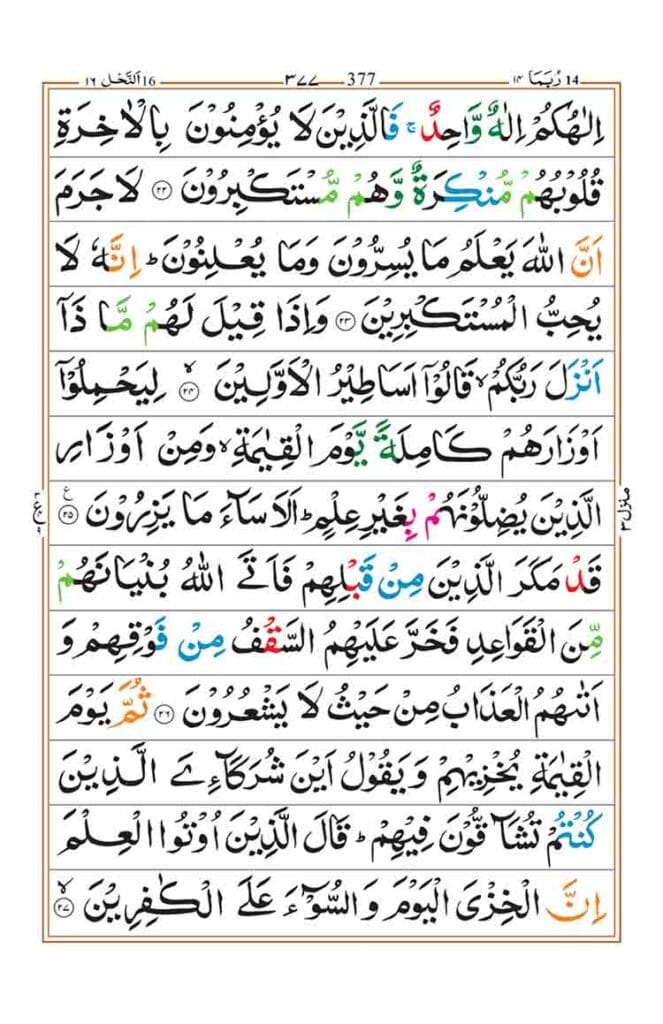 14 رُبَمَا ١٤ 377 ٣٧٧ 16 اَلنَّحْل ١٦
اِلٰهُكُمْ اِلٰهٌ وَّاحِدٌ ۚ فَالَّذِيْنَ لَا يُؤْمِنُوْنَ بِالْاٰخِرَةِ
قُلُوْبُهُمْ مُّنْكِرَةٌ وَّهُمْ مُّسْتَكْبِرُوْنَ ۝۲۲ لَا جَرَمَ
اَنَّ اللّٰهَ يَعْلَمُ مَا يُسِرُّوْنَ وَمَا يُعْلِنُوْنَ ؕ اِنَّهٗ لَا
يُحِبُّ الْمُسْتَكْبِرِيْنَ ۝۲۳ وَاِذَا قِيْلَ لَهُمْ مَّا ذَاۤ
اَنْزَلَ رَبُّكُمْ ۙ قَالُوْۤا اَسَاطِيْرُ الْاَوَّلِيْنَ ۝۲۴ۙ لِيَحْمِلُوْۤا
اَوْزَارَهُمْ كَامِلَةً يَّوْمَ الْقِيٰمَةِ ۙ وَمِنْ اَوْزَارِ
الَّذِيْنَ يُضِلُّوْنَهُمْ بِغَيْرِ عِلْمٍ ؕ اَلَا سَآءَ مَا يَزِرُوْنَ ۝۲۵ ع
منزل ٣
قَدْ مَكَرَ الَّذِيْنَ مِنْ قَبْلِهِمْ فَاَتَى اللّٰهُ بُنْيَانَهُمْ
مِّنَ الْقَوَاعِدِ فَخَرَّ عَلَيْهِمُ السَّقْفُ مِنْ فَوْقِهِمْ وَ
اَتٰىهُمُ الْعَذَابُ مِنْ حَيْثُ لَا يَشْعُرُوْنَ ۝۲۶ ثُمَّ يَوْمَ
الْقِيٰمَةِ يُخْزِيْهِمْ وَيَقُوْلُ اَيْنَ شُرَكَآءِيَ الَّذِيْنَ
كُنْتُمْ تُشَآقُّوْنَ فِيْهِمْ ؕ قَالَ الَّذِيْنَ اُوْتُوا الْعِلْمَ
اِنَّ الْخِزْيَ الْيَوْمَ وَالسُّوْٓءَ عَلَى الْكٰفِرِيْنَ ۝۲۷ۙ